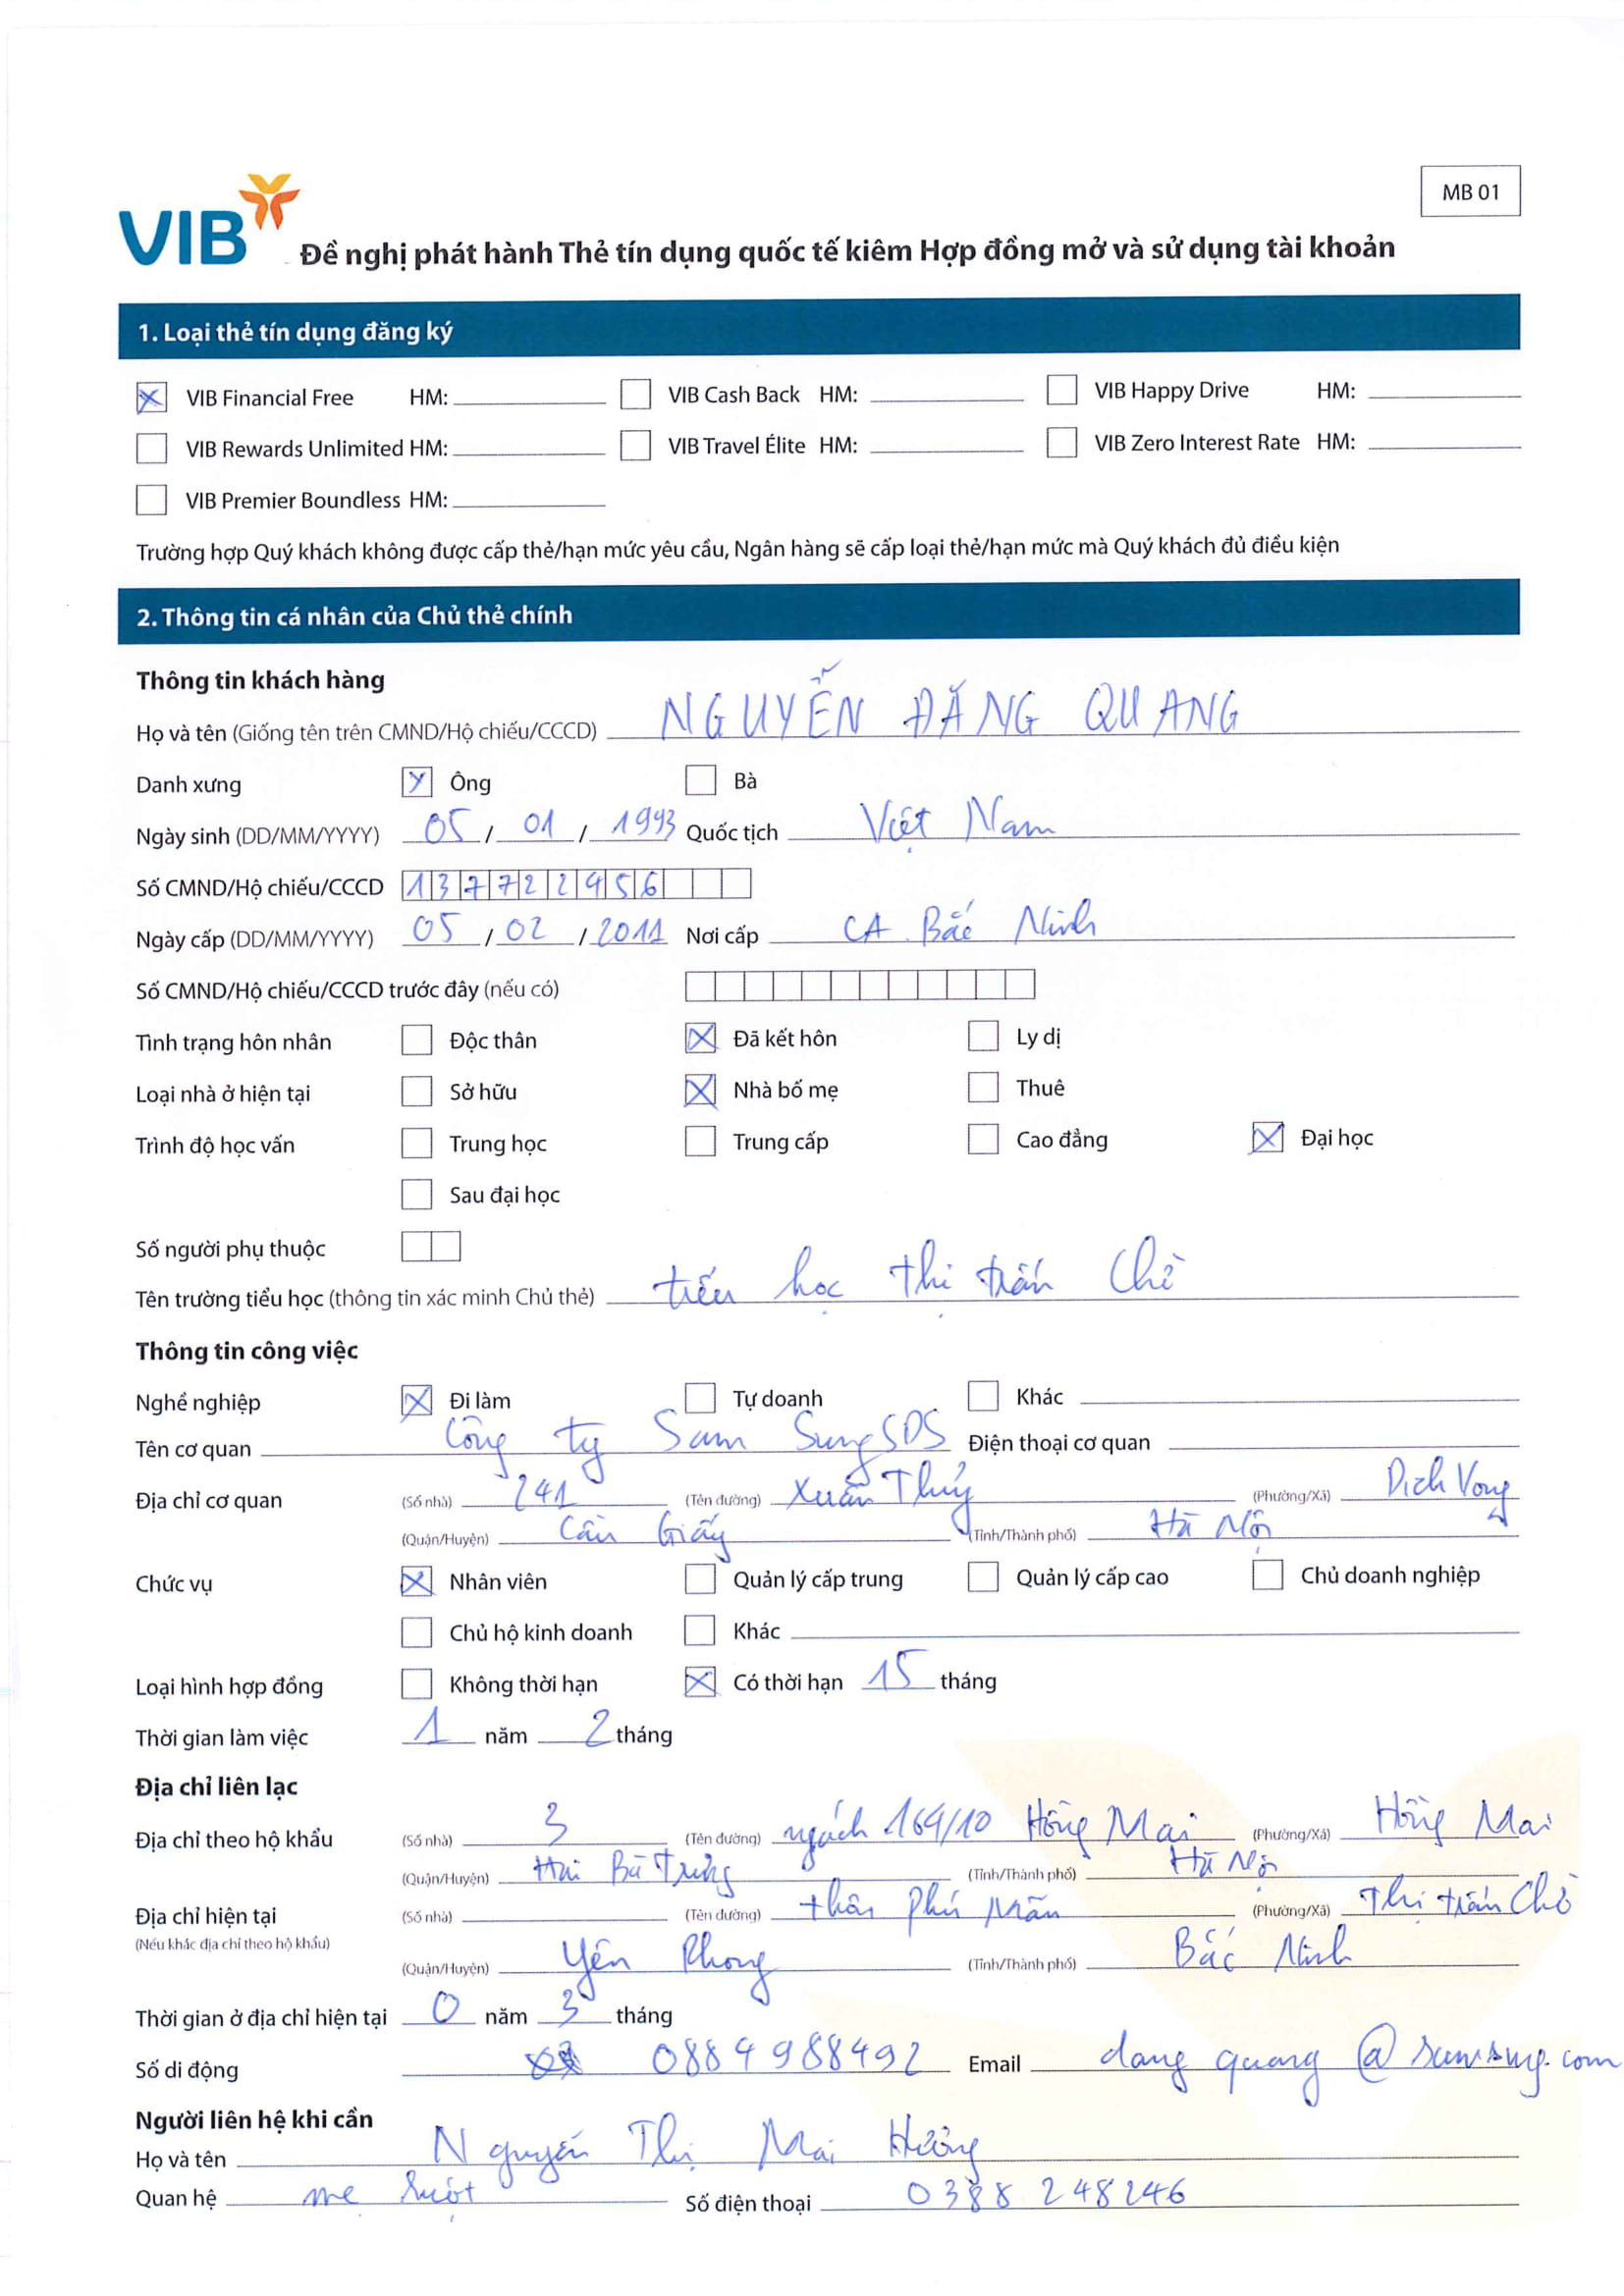 MB 01
VIB
Đề nghị phát hành Thẻ tín dụng quốc tế kiêm Hợp đồng mở và sử dụng tài khoản
1. Loại thẻ tín dụng đăng ký
VIB Financial Free HM: VIB Cash Back HM: VIB Happy Drive HM:
VIB Rewards Unlimited HM: VIB Travel Élite HM: VIB Zero Interest Rate HM:
VIB Premier Boundless HM:
Trường hợp Quý khách không được cấp thẻ/hạn mức yêu cầu, Ngân hàng sẽ cấp loại thẻ/hạn mức mà Quý khách đủ điều kiện
2. Thông tin cá nhân của Chủ thẻ chính
Thông tin khách hàng
Họ và tên (Giống tên trên CMND/Hộ chiếu/CCCD) NGUYỄN ĐĂNG QUANG
Danh xưng Ông Bà
Ngày sinh (DD/MM/YYYY) 05 / 01 / 1993 Quốc tịch Việt Nam
Số CMND/Hộ chiếu/CCCD 137722456
Ngày cấp (DD/MM/YYYY) 05 / 02 / 2011 Nơi cấp CA Bắc Ninh
Số CMND/Hộ chiếu/CCCD trước đây (nếu có)
Tình trạng hôn nhân Độc thân Đã kết hôn Ly dị
Loại nhà ở hiện tại Sở hữu Nhà bố mẹ Thuê
Trình độ học vấn Trung học Trung cấp Cao đẳng Đại học
Sau đại học
Số người phụ thuộc
Tên trường tiểu học (thông tin xác minh Chủ thẻ) tiểu học thị trấn Chờ
Thông tin công việc
Nghề nghiệp Đi làm Tự doanh Khác
Tên cơ quan Công ty Sam Sung SDS Điện thoại cơ quan
Địa chỉ cơ quan (Số nhà) 241 (Tên đường) Xuân Thủy (Phường/Xã) Dịch Vọng
(Quận/Huyện) Cầu Giấy (Tỉnh/Thành phố) Hà Nội
Chức vụ Nhân viên Quản lý cấp trung Quản lý cấp cao Chủ doanh nghiệp
Chủ hộ kinh doanh Khác
Loại hình hợp đồng Không thời hạn Có thời hạn 15 tháng
Thời gian làm việc 1 năm 2 tháng
Địa chỉ liên lạc
Địa chỉ theo hộ khẩu (Số nhà) 3 (Tên đường) ngách 164/10 Hồng Mai (Phường/Xã) Hồng Mai
(Quận/Huyện) Hai Bà Trưng (Tỉnh/Thành phố) Hà Nội
Địa chỉ hiện tại (Số nhà) (Tên đường) thôn Phú Mẫn (Phường/Xã) Thị trấn Chờ
(Nếu khác địa chỉ theo hộ khẩu)
(Quận/Huyện) Yên Phong (Tỉnh/Thành phố) Bắc Ninh
Thời gian ở địa chỉ hiện tại 0 năm 3 tháng
Số di động 0884988492 Email dang quang @ samsung.com
Người liên hệ khi cần
Họ và tên Nguyễn Thị Mai Hương
Quan hệ mẹ ruột Số điện thoại 0388 248246